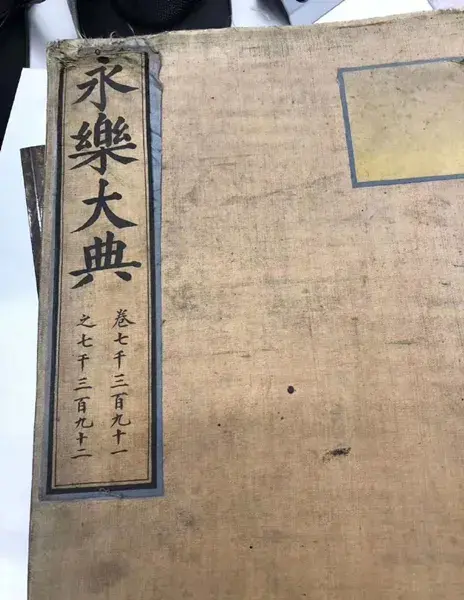 永樂大典
卷七千三百九十一
之七千三百九十二